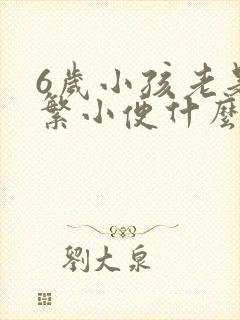 6歲小孩老是
繁小便什麼
劉大泉